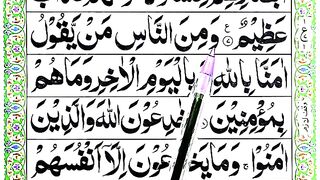 عَظِيْمٌ وَمِنَ النَّاسِ مَنْ يَّقُوْلُ
اٰمَنَّا بِاللّٰهِ وَبِالْيَوْمِ الْاٰخِرِ وَمَا هُمْ
بِمُؤْمِنِيْنَ يُخٰدِعُوْنَ اللّٰهَ وَالَّذِيْنَ
اٰمَنُوْا وَمَا يَخْدَعُوْنَ اِلَّآ اَنْفُسَهُمْ